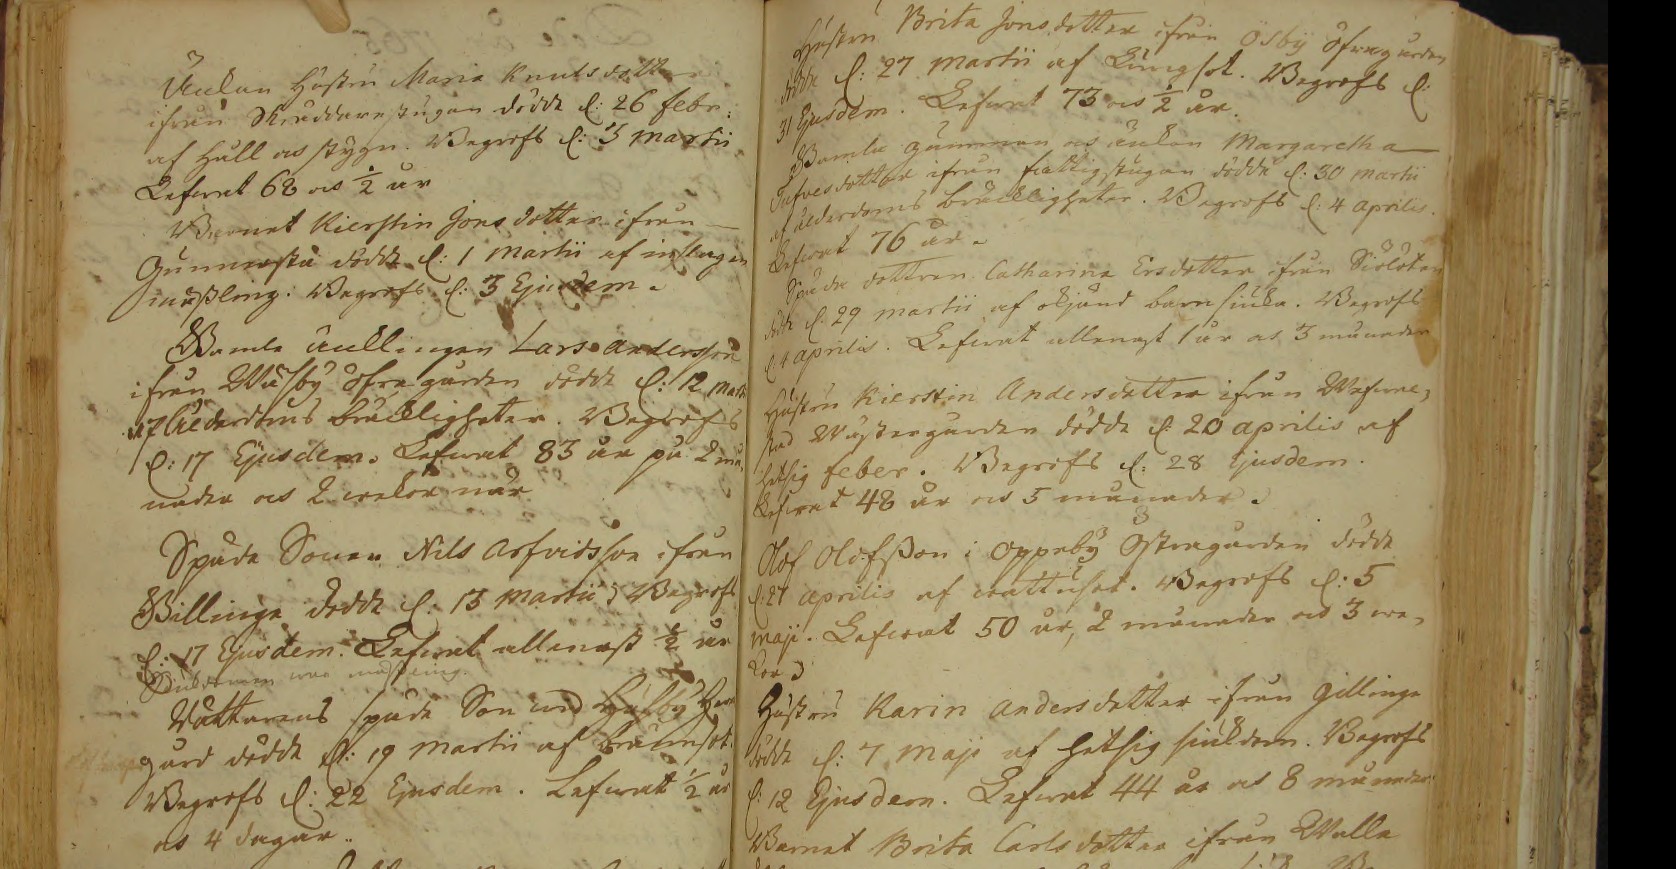 Änkan Hustru Maria Knutsdotter
ifrån Skräddarestugan dödde d: 26 febr:
af håll och stygn. Begrofs d: 3 Martii
Lefwat 68 och ½ år
Barnet Kierstin Jonsdotter ifrån
Gunnersta dödde d: 1 Martii af inslagen
mäßling. Begrofs d: 3 Ejusdem.
Gamle änklingen Lars Andersson
ifrån Wäsby öfregården dödde d: 12 Martii
af ålderdoms bräckligheter. Begrofs
d: 17 Ejusdem. Lefwat 83 år på 2 må-
nader och 2 wekor när
Späda Sonen Nils Arfvidsson ifrån
Billinge dödde d: 13 Martii, Begrofs
d: 17 Ejusdem. Lefwat allenast ½ år
Siukdomen war mäßling.
späda Son wid Husby Her-
gård dödde d: 19 Martii af bränsot.
Begrofs d: 22 Ejusdem. Lefwat ½ år
och 4 dagar..
Hustru Brita Jonsdotter ifrån Ösby öfregården
dödde d: 27 Martii af Lungsot. Begrofs d:
31 Ejusdem. Lefwat 73 och ½ år.
Gamla gumman och änkan Margaretha
ifrån fattigstugan dödde d: 30 Martii
af ålderdoms bräckligheter. Begrofs d: 4 aprilis.
Lefwat 76 år.
Späda dottren Catharina Ersdotter ifrån
dödde d: 29 martii af okänd barnsiuka. Begrofs
d: 4 aprilis. Lefwat allenast 1 år och 3 månader
Hustru Kierstin Andersdotter ifrån
stad Wästergården dödde d: 20 aprilis af
hetsig feber. Begrofs d: 28 Ejusdem.
Lefwat 48 år och 5 månader.
Olof Olofßon i Oppeby Östregården dödde
d: 27 aprilis af wattusot. Begrofs d: 5
maji. Lefwat 50 år, 2 månader och 3 we-
kor
Hustru Karin Andersdotter ifrån Gillinge
dödde d: 7 Maji af hetsig siukdom. Begrofs
d: 12 Ejusdem. Lefwat 44 år och 8 månader.
Barnet Brita Carlsdotter ifrån Walla